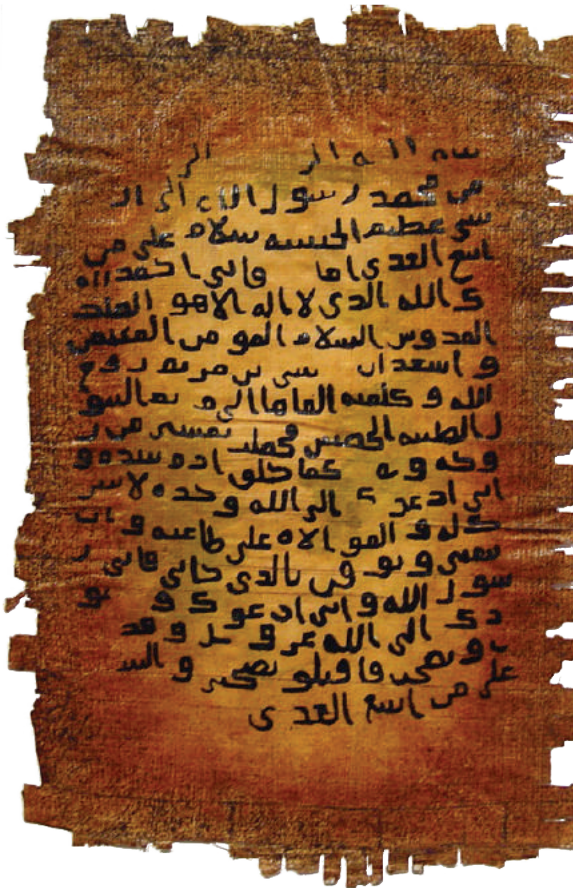 بسم الله الر الر
من محمد رسول الله الى الـ
شي عظيم الحبشة سلام على من
اتبع الهدى اما فاني احمد اليـ
ك الله الذي لا اله الا هو الملك
القدوس السلام المومن المهيمن
و اشهد ان عيسى بن مريم روح
الله و كلمته القاها الى مريم البتو
ل الطيبة الحصينة فحملت بعيسى من ر
وحه و كما خلق ادم بيده و
اني ادعوك الى الله وحده لا شر
يك له و الموالاه على طاعته و ان
تتبعني و توقن بالذي جاني فاني ر
سول الله و اني ادعوك و نو
دك الى الله عز و جل و قد
و نصحت فاقبلو نصيحتي و السلا
على من اتبع الهدى